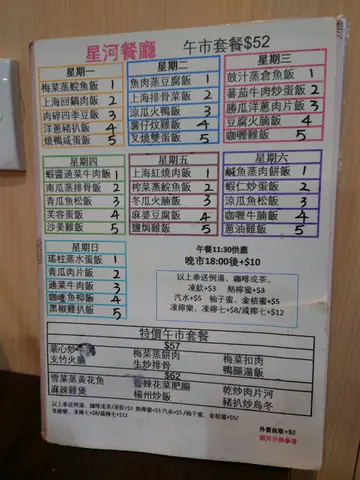 星河餐廳 午市套餐$52
星期一
梅菜蒸鯇魚飯 1
上海回鍋肉飯 2
肉碎四季豆飯 3
洋蔥豬扒飯 4
燒鴨咸蛋飯 5
星期二
魚肉蒸豆腐飯 1
上海排骨菜飯 2
涼瓜火鴨飯 3
薯仔炆雞飯 4
叉燒雙蛋飯 5
星期三
鼓汁蒸倉魚飯 1
蕃茄牛肉炒蛋飯 2
勝瓜洋蔥肉片飯 3
豆腐火腩飯 4
咖喱雞飯 5
星期四
蝦醬通菜牛肉飯 1
南瓜蒸排骨飯 2
青瓜魚松飯 3
芙蓉蛋飯 4
沙姜雞飯 5
星期五
上海紅燒肉飯 1
榨菜蒸鯇魚飯 2
冬瓜火腩飯 3
麻婆豆腐飯 4
鹽焗雞飯 5
星期六
鹹魚蒸肉餅飯 1
蝦仁炒蛋飯 2
涼瓜魚松飯 3
咖喱牛腩飯 4
蔥油雞飯 5
星期日
瑤柱蒸水蛋飯 1
青瓜肉片飯 2
通菜牛肉飯 3
咖喱魚柳飯 4
黑椒雞扒飯 5
午餐11:30供應
晚市18:00後+$10
以上奉送例湯、咖啡或茶。
凍飲+$3 熱檸蜜+$3
汽水+$5 柚子蜜、金桔蜜+$5
凍檸樂、凍檸七+$8/咸檸七+$12
特價午市套餐
$57
菜心炒
支竹火腩
梅菜蒸餅肉
生炒排骨
梅菜扣肉
鴨腿湯飯
$62
雪菜蒸黃花魚
麻辣雞煲
辣花菜肥腸
楊州炒飯
乾炒肉片河
豬扒炒烏冬
以上奉送例湯、咖啡或茶/凍飲+$3 熱檸蜜+$3 汽水+$5 /柚子蜜、金桔蜜+$5/
凍檸樂、凍檸七+$8/咸檸七+$12
外賣自取+$2
圖片只供參考